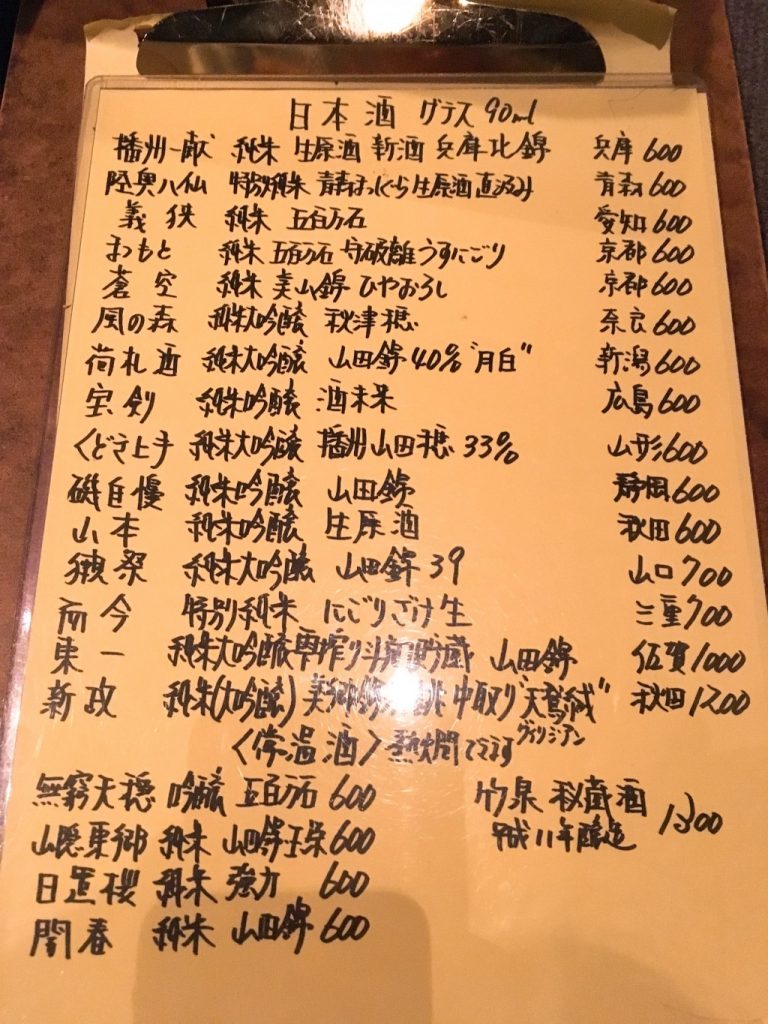 日本酒 グラス 90ml
播州一献 純米 生原酒 新酒 兵庫北錦 兵庫 600
陸奥八仙 特別純米 青森まっしぐら 生原酒 直汲み 青森 600
義侠 純米 五百万石 愛知 600
まつもと 純米 五百万石 守破離 うすにごり 京都 600
蒼空 純米 美山錦 ひやおろし 京都 600
風の森 純米大吟醸 秋津穂 奈良 600
荷札酒 純米大吟醸 山田錦 40% "月白" 新潟 600
宝剣 純米吟醸 酒未来 広島 600
くどき上手 純米大吟醸 播州山田穂 33% 山形 600
磯自慢 純米吟醸 山田錦 静岡 600
山本 純米吟醸 生原酒 秋田 600
獺祭 純米大吟醸 山田錦 39 山口 700
而今 特別純米 にごりざけ生 三重 700
東一 純米大吟醸 雫搾り斗瓶貯蔵 山田錦 佐賀 1000
新政 純米(大吟醸) 美郷錦 中取り "天鵞絨" ヴィリジアン 秋田 1200
〈常温酒〉 熱燗できます
無窮天穏 吟醸 五百万石 600
山陰東郷 純米 山田錦 玉栄 600
日置桜 純米 強力 600
開春 純米 山田錦 600
竹泉 秘蔵酒 1300
平成11年醸造